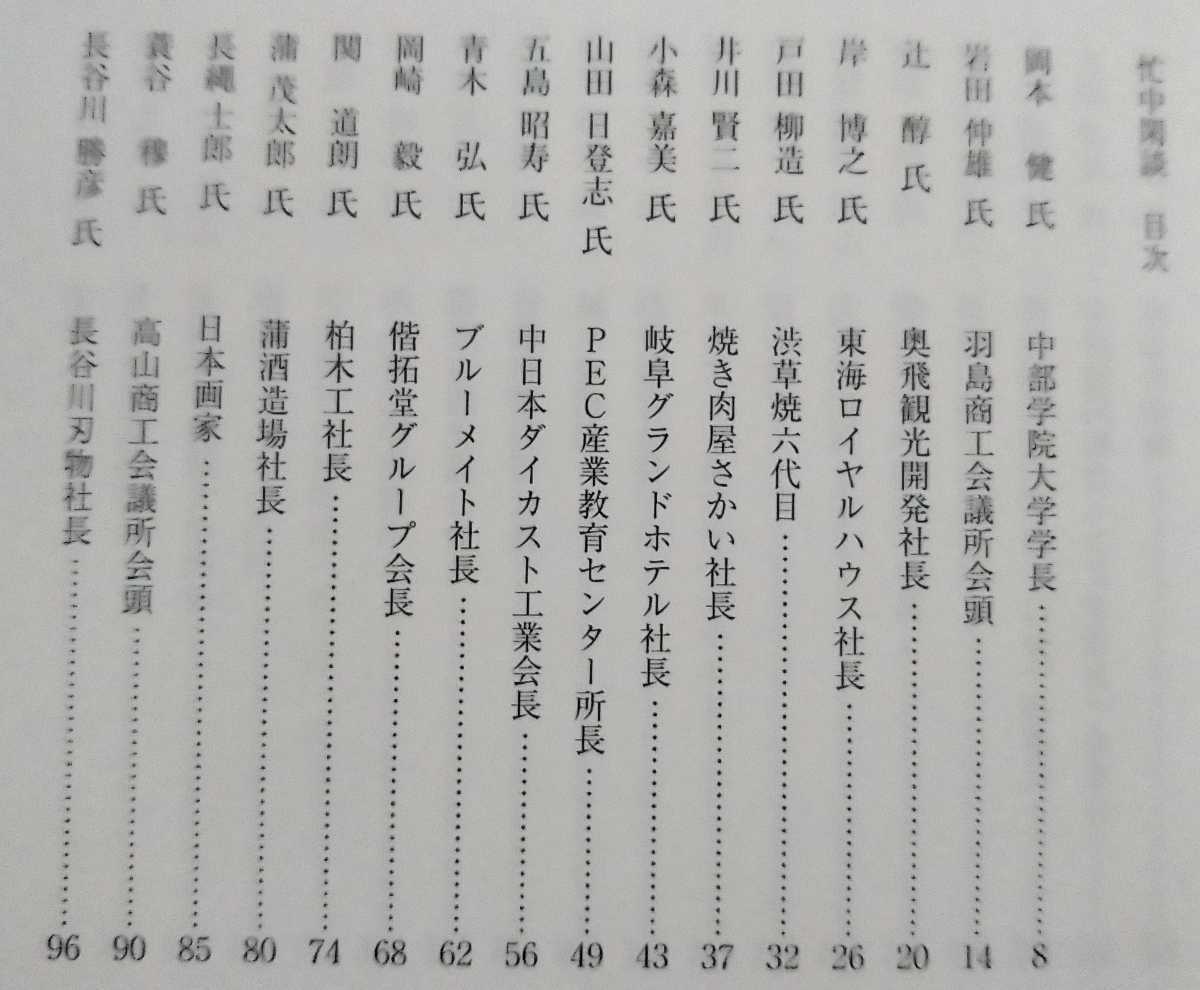 忙中閑談 目次
岡本 健 氏 中部学院大学学長 8
岩田 仲雄 氏 羽島商工会議所会頭 14
辻 醇 氏 奥飛観光開発社長 20
岸 博之 氏 東海ロイヤルハウス社長 26
戸田 柳造 氏 渋草焼六代目 32
井川 賢二 氏 焼き肉屋さかい社長 37
小森 嘉美 氏 岐阜グランドホテル社長 43
山田 日登志 氏 PEC産業教育センター所長 49
五島 昭寿 氏 中日本ダイカスト工業会長 56
青木 弘 氏 ブルーメイト社長 62
岡崎 毅 氏 偕拓堂グループ会長 68
関 道朗 氏 柏木工社長 74
蒲 茂太郎 氏 蒲酒造場社長 80
長縄 士郎 氏 日本画家 85
蓑谷 穆 氏 高山商工会議所会頭 90
長谷川 勝彦 氏 長谷川刃物社長 96